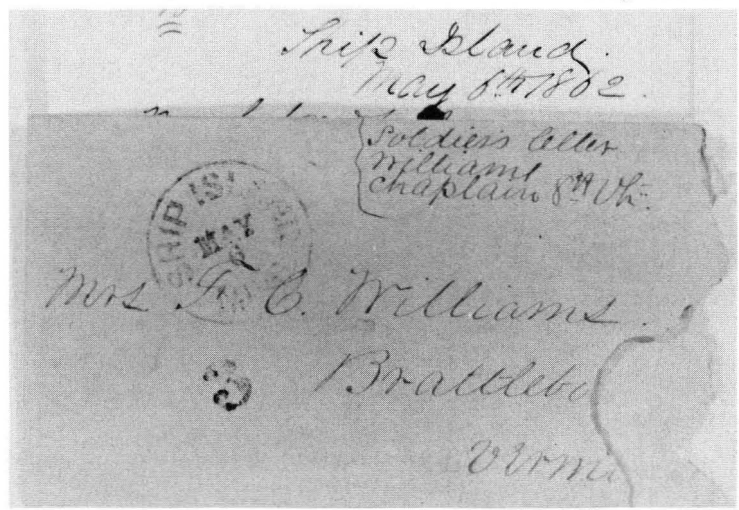 Ship Island.
May 6th 1862.
Soldier's letter
Williams
Chaplain 8th Vt.
SHIP ISLAND
MAY
6
Mrs F. C. Williams.
3
Brattlebo
Vermo